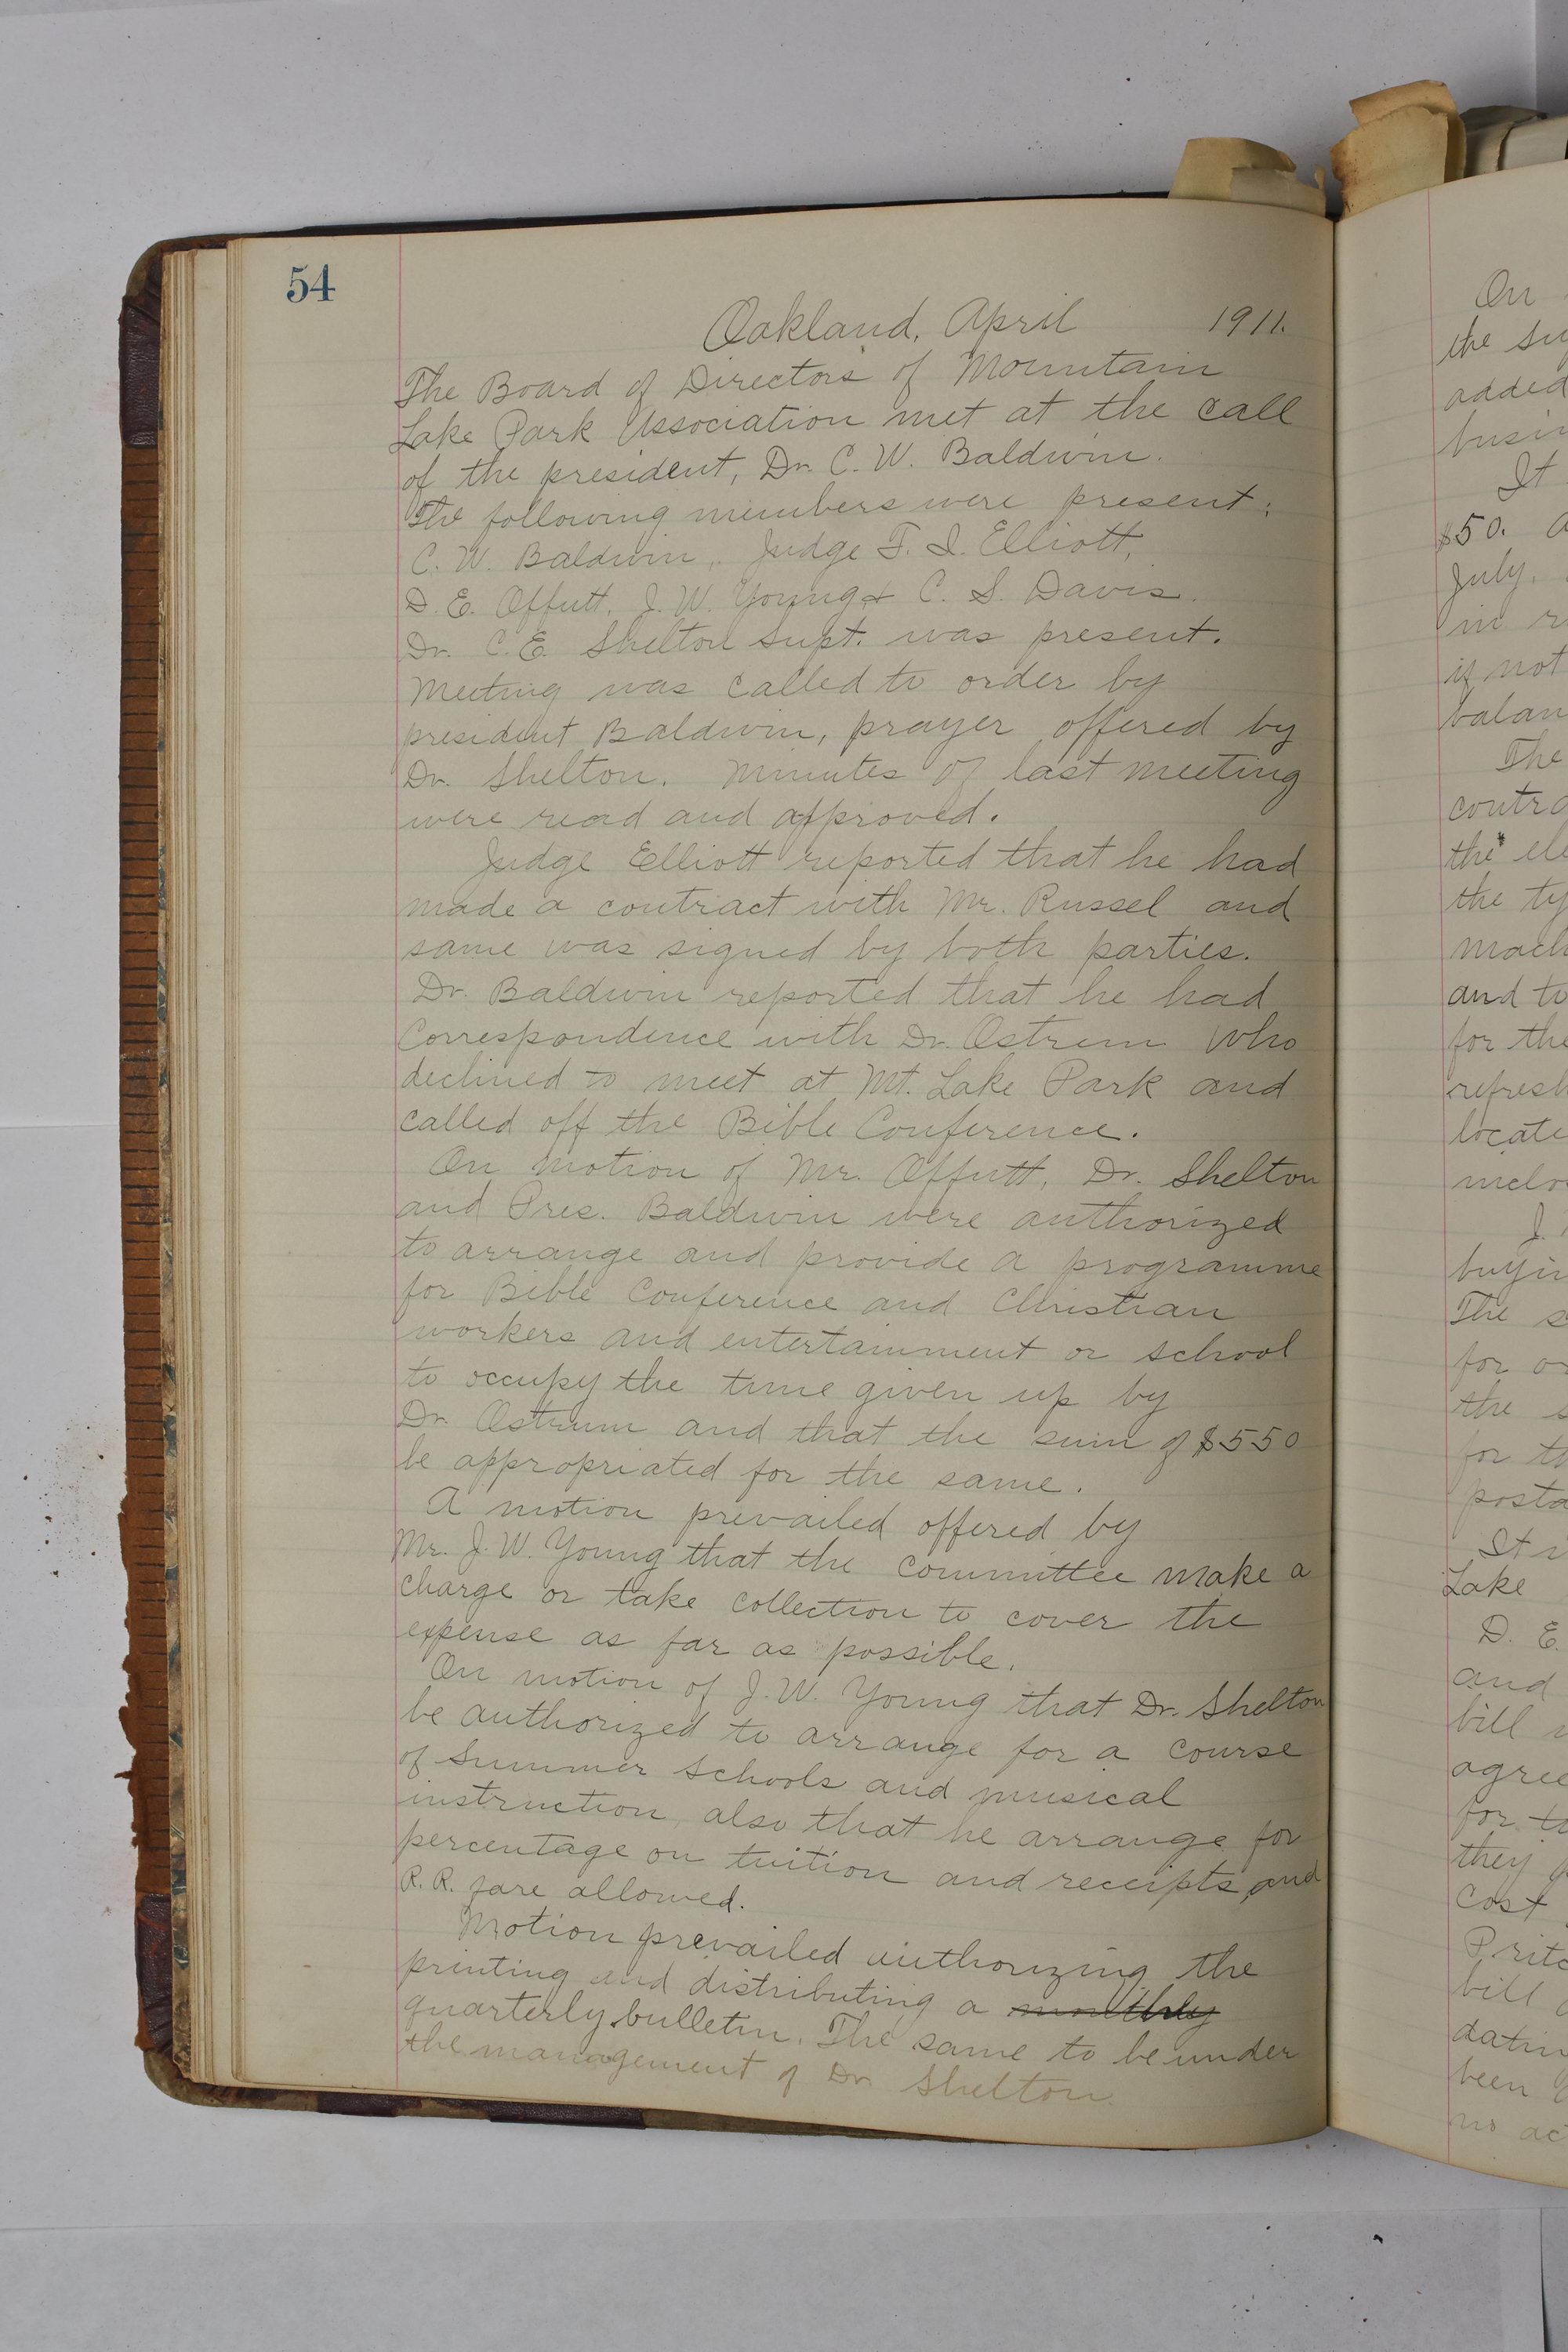 54
Oakland, April 1911.
The Board of Directors of Mountain
Lake Park Association met at the call
of the president, Dr. C. W. Baldwin.
The following members were present:
C. W. Baldwin, Judge F. I. Elliott,
D. E. Offutt, J. W. Young & C. S. Davis.
Dr. C. E. Shelton Supt. was present.
Meeting was called to order by
president Baldwin, prayer offered by
Dr. Shelton. Minutes of last meeting
were read and approved.
Judge Elliott reported that he had
made a contract with Mr. Russel and
same was signed by both parties.
Dr. Baldwin reported that he had
Correspondence with Dr. Ostrum who
declined to meet at Mt. Lake Park and
called off the Bible Conference.
On motion of Mr. Offutt, Dr. Shelton
and Pres. Baldwin were authorized
to arrange and provide a programme
for Bible Conference and Christian
workers and entertainment or school
to occupy the time given up by
Dr. Ostrum and that the sum of $550
be appropriated for the same.
A motion prevailed offered by
Mr. J. W. Young that the committee make a
charge or take collection to cover the
expense as far as possible.
On motion of J. W. Young that Dr. Shelton
be authorized to arrange for a course
of Summer schools and musical
instruction, also that he arrange for
percentage on tuition and receipts, and
R. R. fare allowed.
Motion prevailed authorizing the
printing and distributing a monthly
quarterly bulletin. The same to be under
the management of Dr. Shelton
On
the
added
It
$50.
July.
in
if not
balan
The
contra
the ele
the ty
mach
and to
for the
refresh
locate
inclo
J.
buyin
The
for
the
for th
posta
It
Lake
D. E.
and
bill
agree
for
they
Cost
Pritc
bill
datin
been
no ac